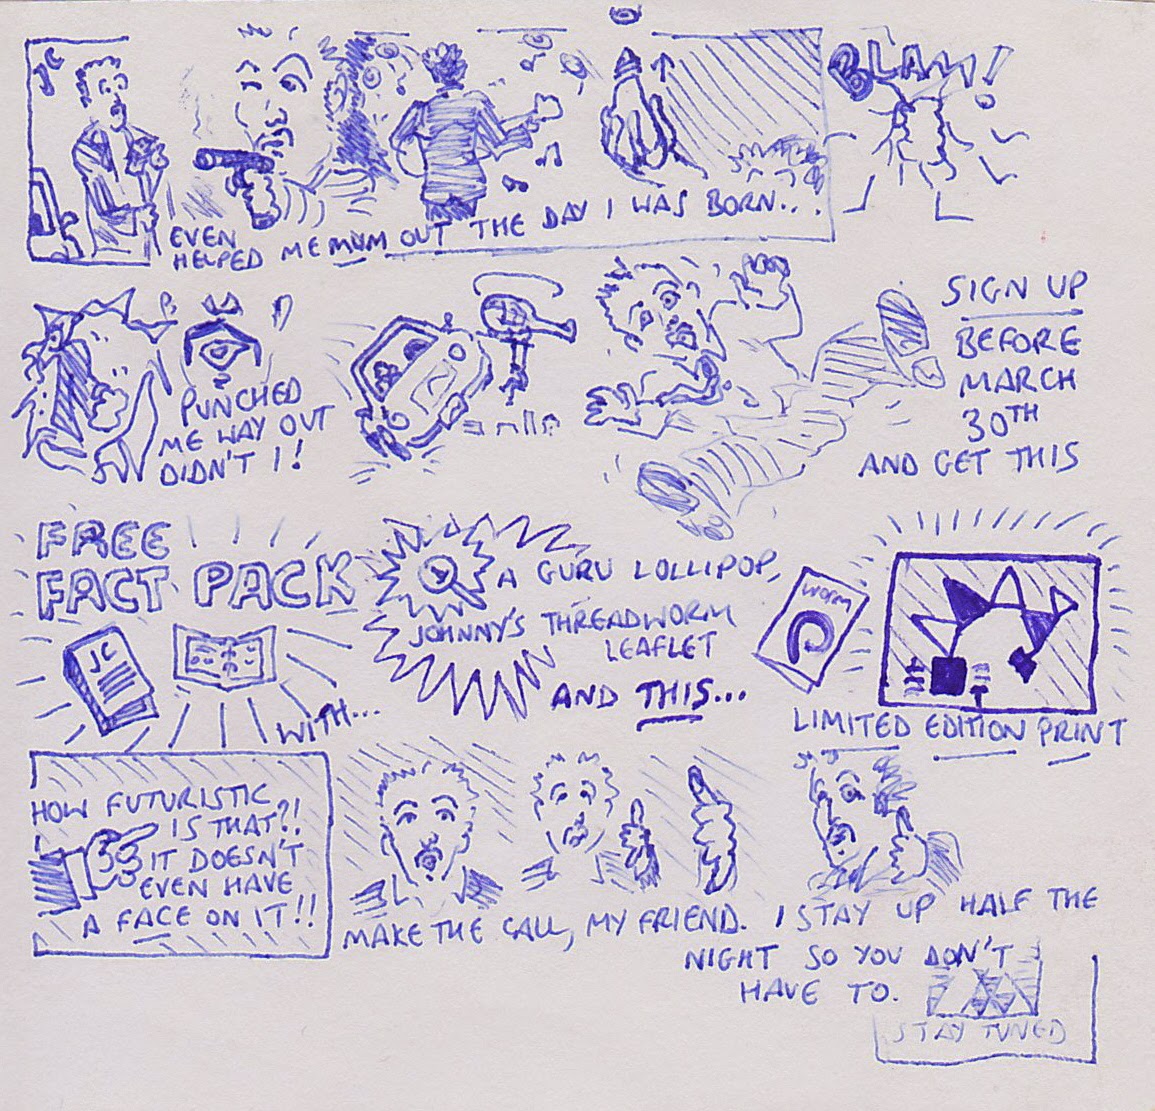 JC
BLAM!
EVEN
HELPED ME MUM OUT THE DAY I WAS BORN...
PUNCHED
ME WAY OUT
DIDN'T I!
SIGN UP
BEFORE
MARCH
30TH
AND GET THIS
FREE
FACT PACK
JC
WITH...
A GURU LOLLIPOP,
JOHNNY'S THREADWORM
LEAFLET
AND THIS...
WORM
LIMITED EDITION PRINT
HOW FUTURISTIC
IS THAT?!
IT DOESN'T
EVEN HAVE
A FACE ON IT!!
MAKE THE CALL, MY FRIEND.
I STAY UP HALF THE
NIGHT SO YOU DON'T
HAVE TO.
STAY TUNED